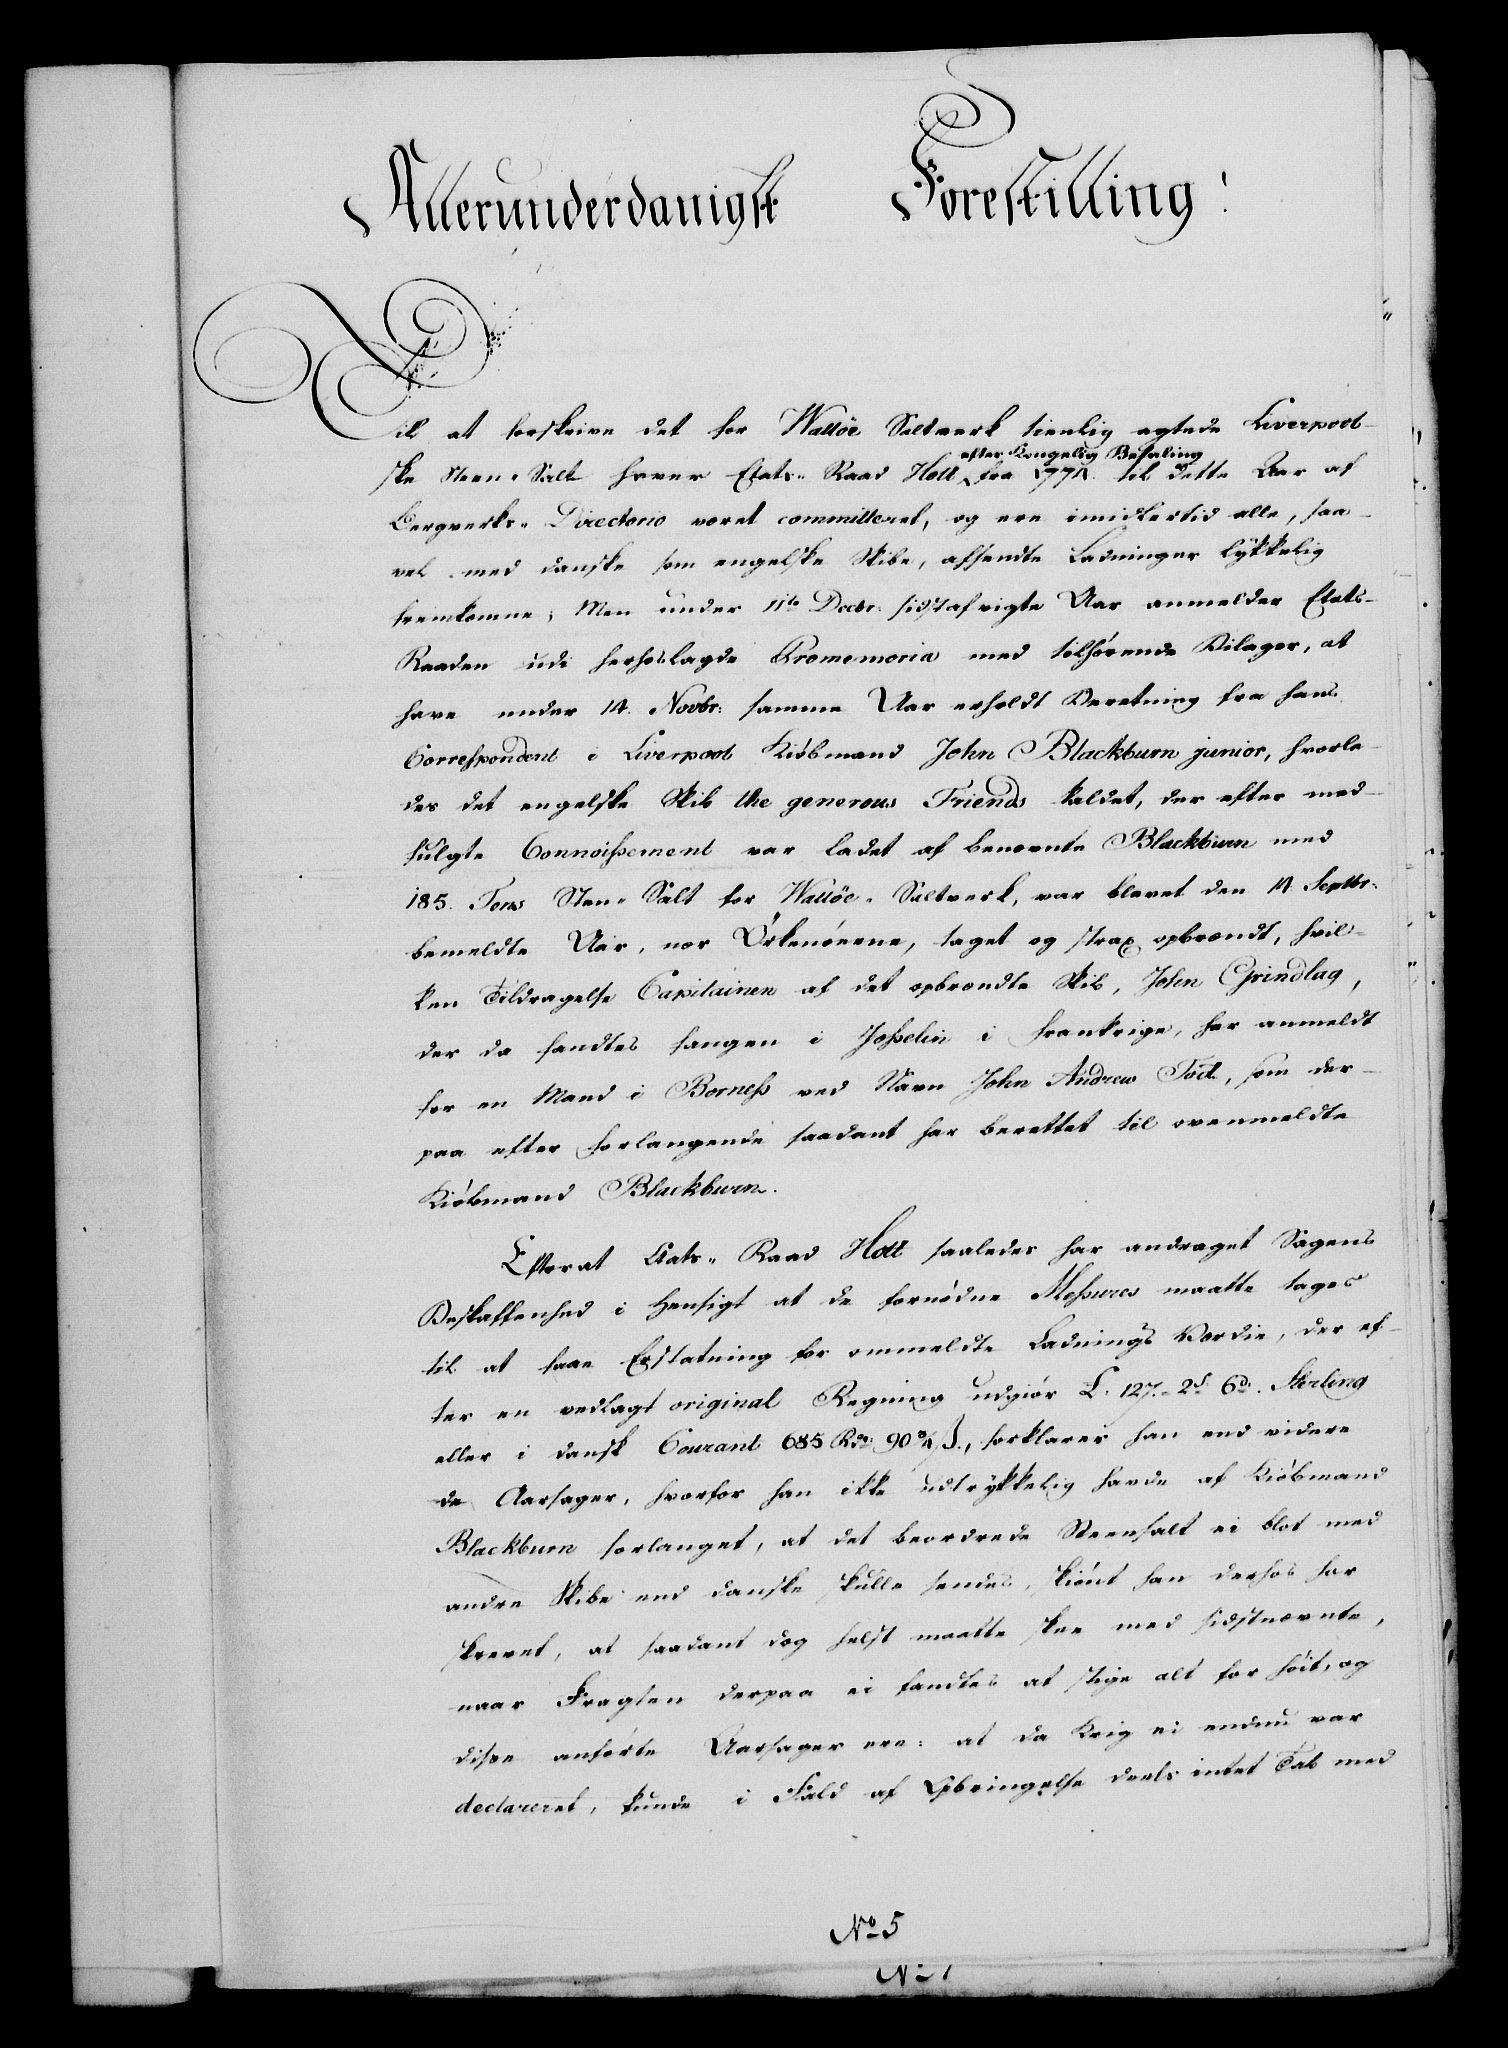 Allerunderdanigst Forestilling!
Til at forskrive det for Walløe Saltverk tienlig agtede Liverpool-
ske Steen-Salt haver Etats-Raad Holt efter Kongelig Befaling fra 1774 til dette Aar af
Bergverks-Directorio været committeret, og ere imidlertid alle, saa-
vel med danske som engelske Skibe, afsendte Ladninger lykkelig
fremkomne; Men under 11te Decbr: sidstafvigte Aar anmelder Etats-
Raaden udi herhoslagde Promemoria med tilhørende Bilager, at
have under 14. Novbr: samme Aar erholdt Beretning fra hans
Correspondent i Liverpool Kiøbmand John Blackburn junior, hvorle-
des det engelske Skib the generous Friends kaldet, der efter med-
fulgte Connoissement var ladet af benævnte Blackburn med
185. Tons Steen-Salt for Walløe-Saltverk, var blevet den 14 Septbr:
bemeldte Aar, nær Ørkenøerne, taget og strax opbrændt, hvil-
ken Tildragelse Capitainen af det opbrændte Skib, John Grindlag,
der da fandtes fangen i Josselin i Frankrige, har anmeldt
for en Mand i Borness ved Navn John Andrew Tod, som der-
paa efter Forlangende saadant har berettet til ovenmeldte
Kiøbmand Blackburn.
Efterat Etats-Raad Holt saaledes har andraget Sagens
Beskaffenhed i Hensigt at de fornødne Messures maatte tages
til at faae Erstatning for ommeldte Ladnings Værdie, der ef-
ter en vedlagt original Regning udgiør £. 127.- 2s. 6d. Sterling
eller i dansk Courant 685 Rdr: 90 3/4 ß., forklarer han end videre
de Aarsager, hvorfor han ikke udtrykkelig havde af Kiøbmand
Blackburn forlanget, at det beordrede Steensalt ei blot med
andre Skibe end danske skulle sendes, skiønt han derhos har
skrevet, at saadant dog helst maatte skee med sidstnævnte,
naar Fragten derpaa ei fandtes at stige alt for høit, og
disse anførte Aarsager ere: at da Krig ei endnu var
declareret, kunde i Fald af Opbringelse deels intet Tab med
No 5
No 1